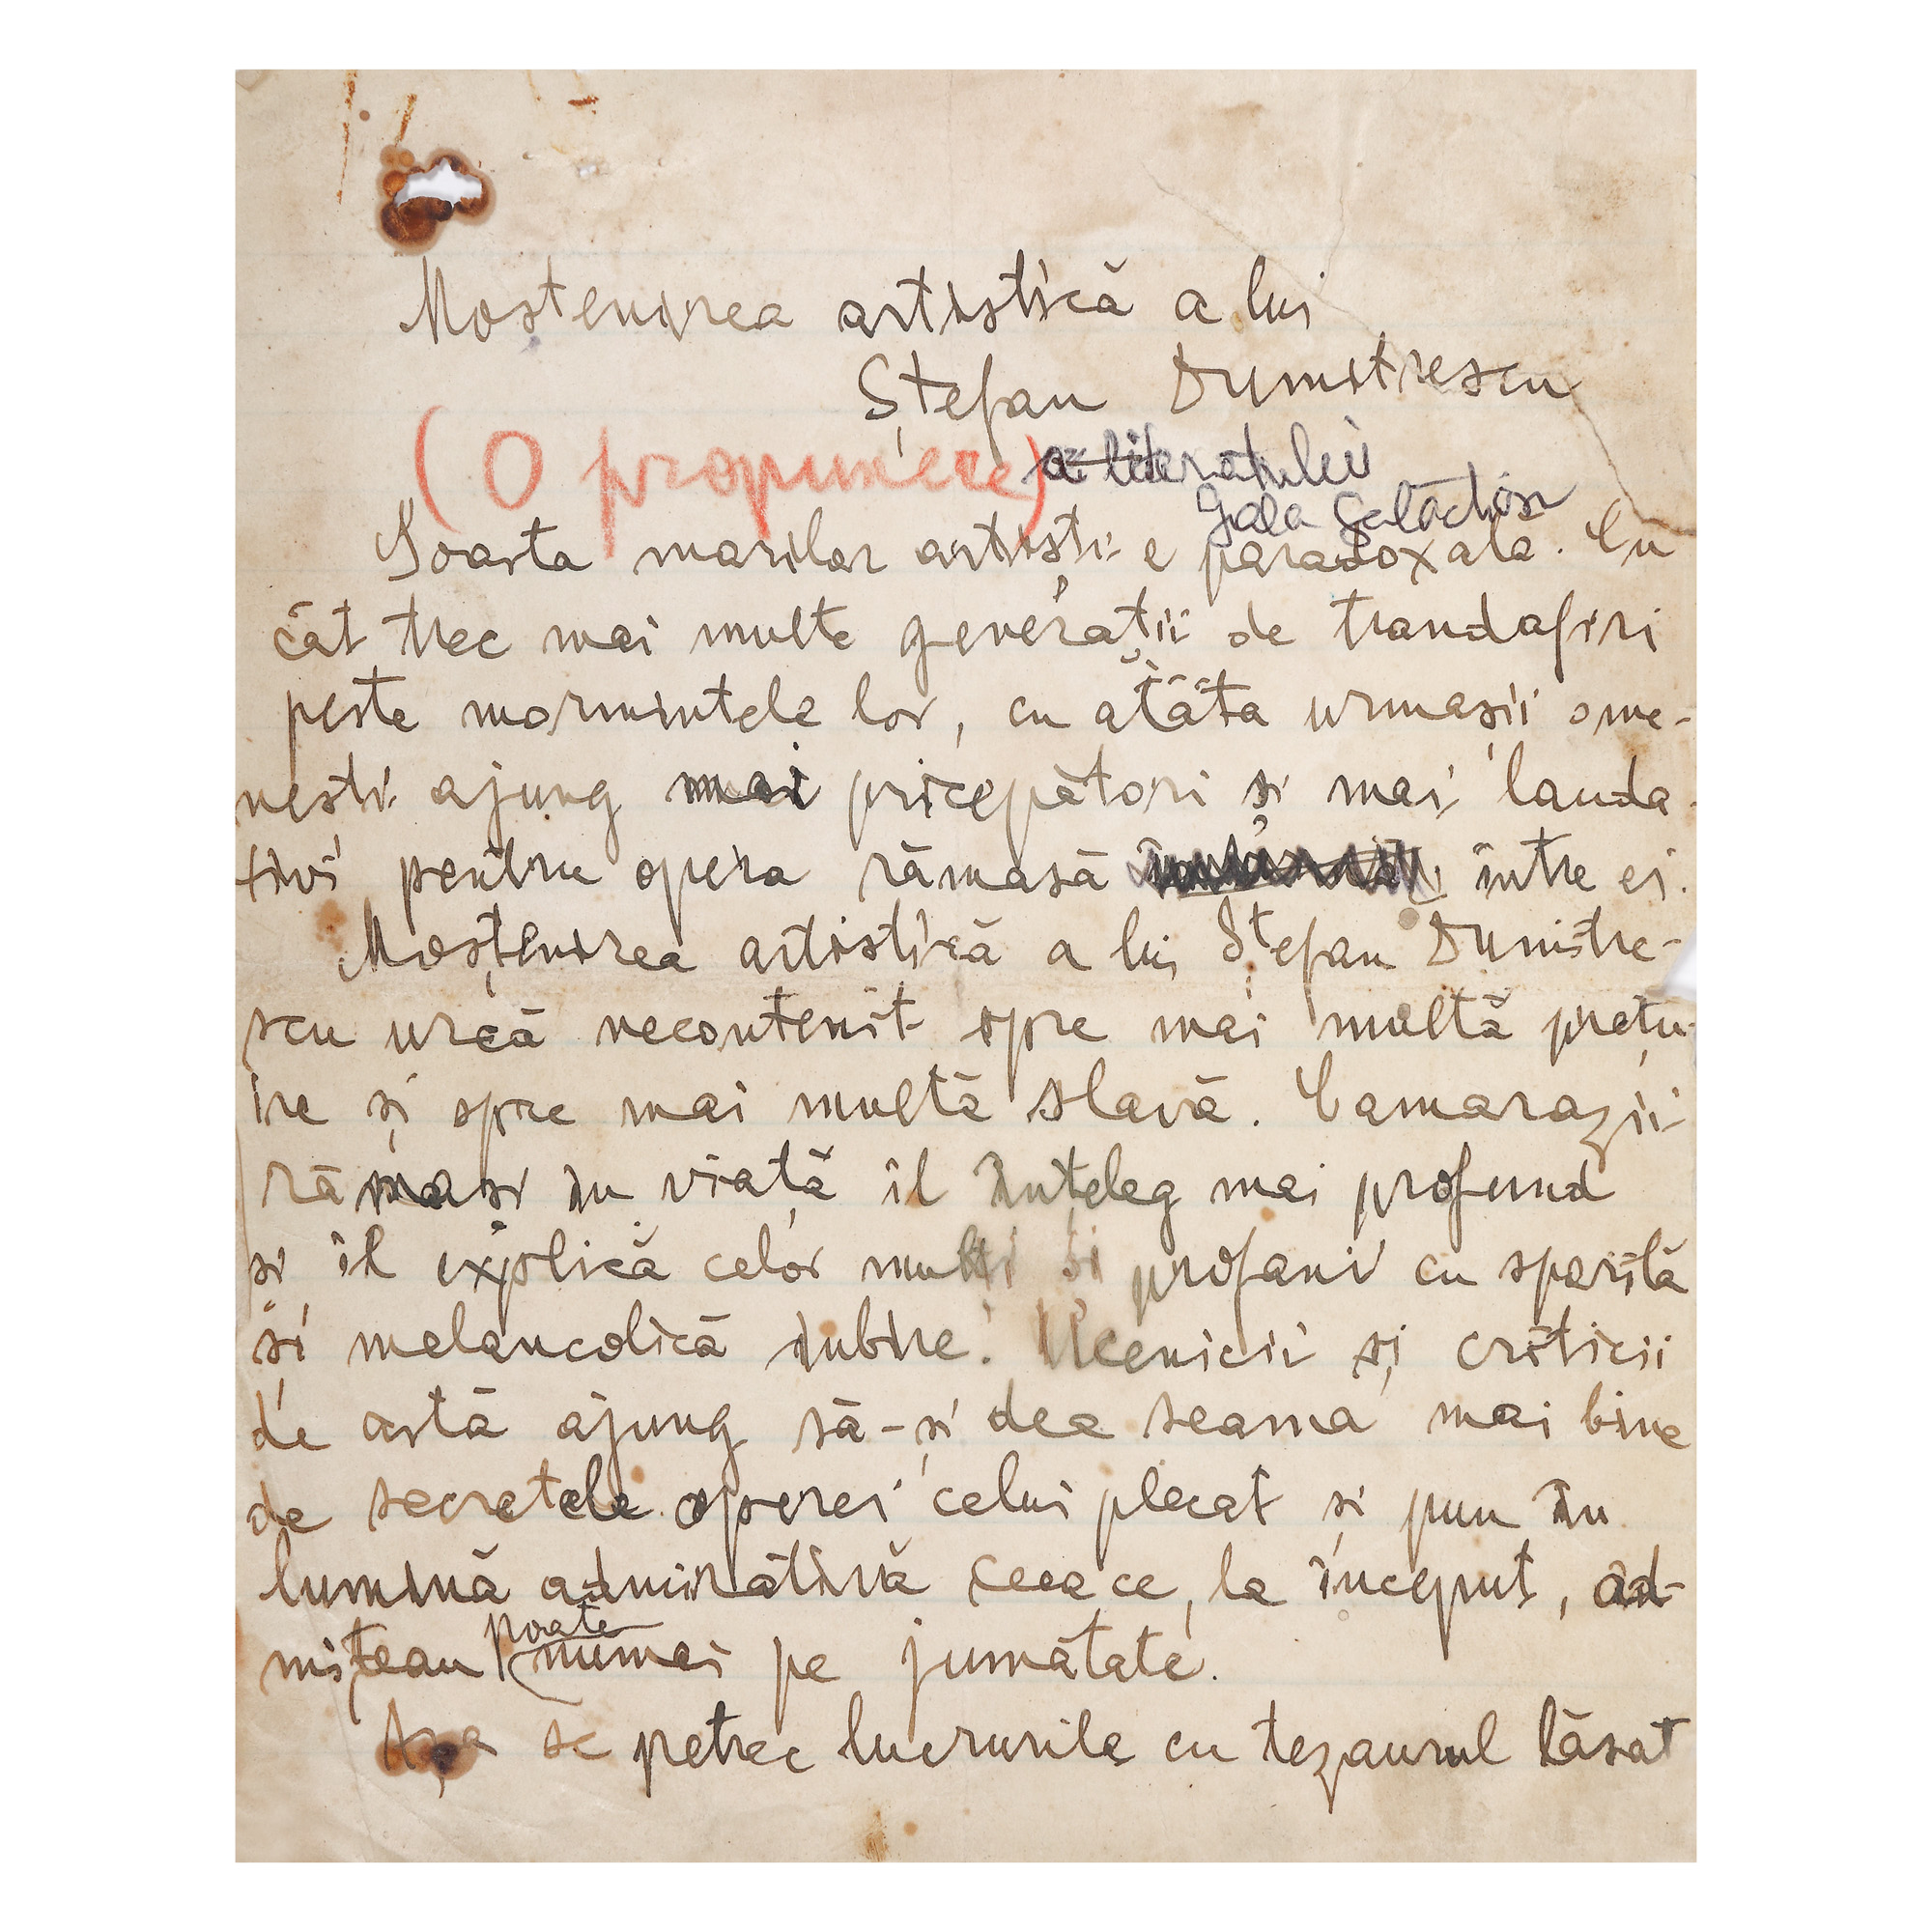 Moștenirea artistică a lui
Ștefan Dumitrescu
(O propunere) a literatului
Gala Galaction
Soarta marilor artiști e paradoxala. Cu
cât trec mai multe generații de trandafiri
peste mormintele lor, cu atâta urmașii ome-
nești ajung mai pricepători și mai lauda-
tivi pentru opera rămasă între ei.
Moștenirea artistică a lui Ștefan Dumitre-
scu urcă necontenit spre mai multă prețu-
ire și spre mai multă slavă. Camarazii
rămași în viață îl înțeleg mai profund
și îl explică celor mulți și profani cu sporită
și melancolică iubire. Ucenicii și criticii
de artă ajung să-și dea seama mai bine
de secretele operei celui plecat și pun în
lumină admirativă ceeace, la început, ad-
miteau poate numai pe jumătate.
Așa se petrec lucrurile cu tezaurul lăsat